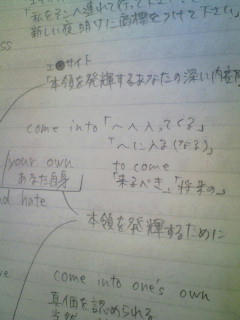 「私をデンへ連れて行って下さい」
新しい夜明けに商標をつけて下さい」
ss
エ●サイド
「本領を発揮するあなたの深い内
come into「〜へ入ってくる」
「〜に入る(なる)」
your own
あなた自身
to come
「来るべき」「将来の」
d hate
本領を発揮するために
come into one's own
真価を認められる